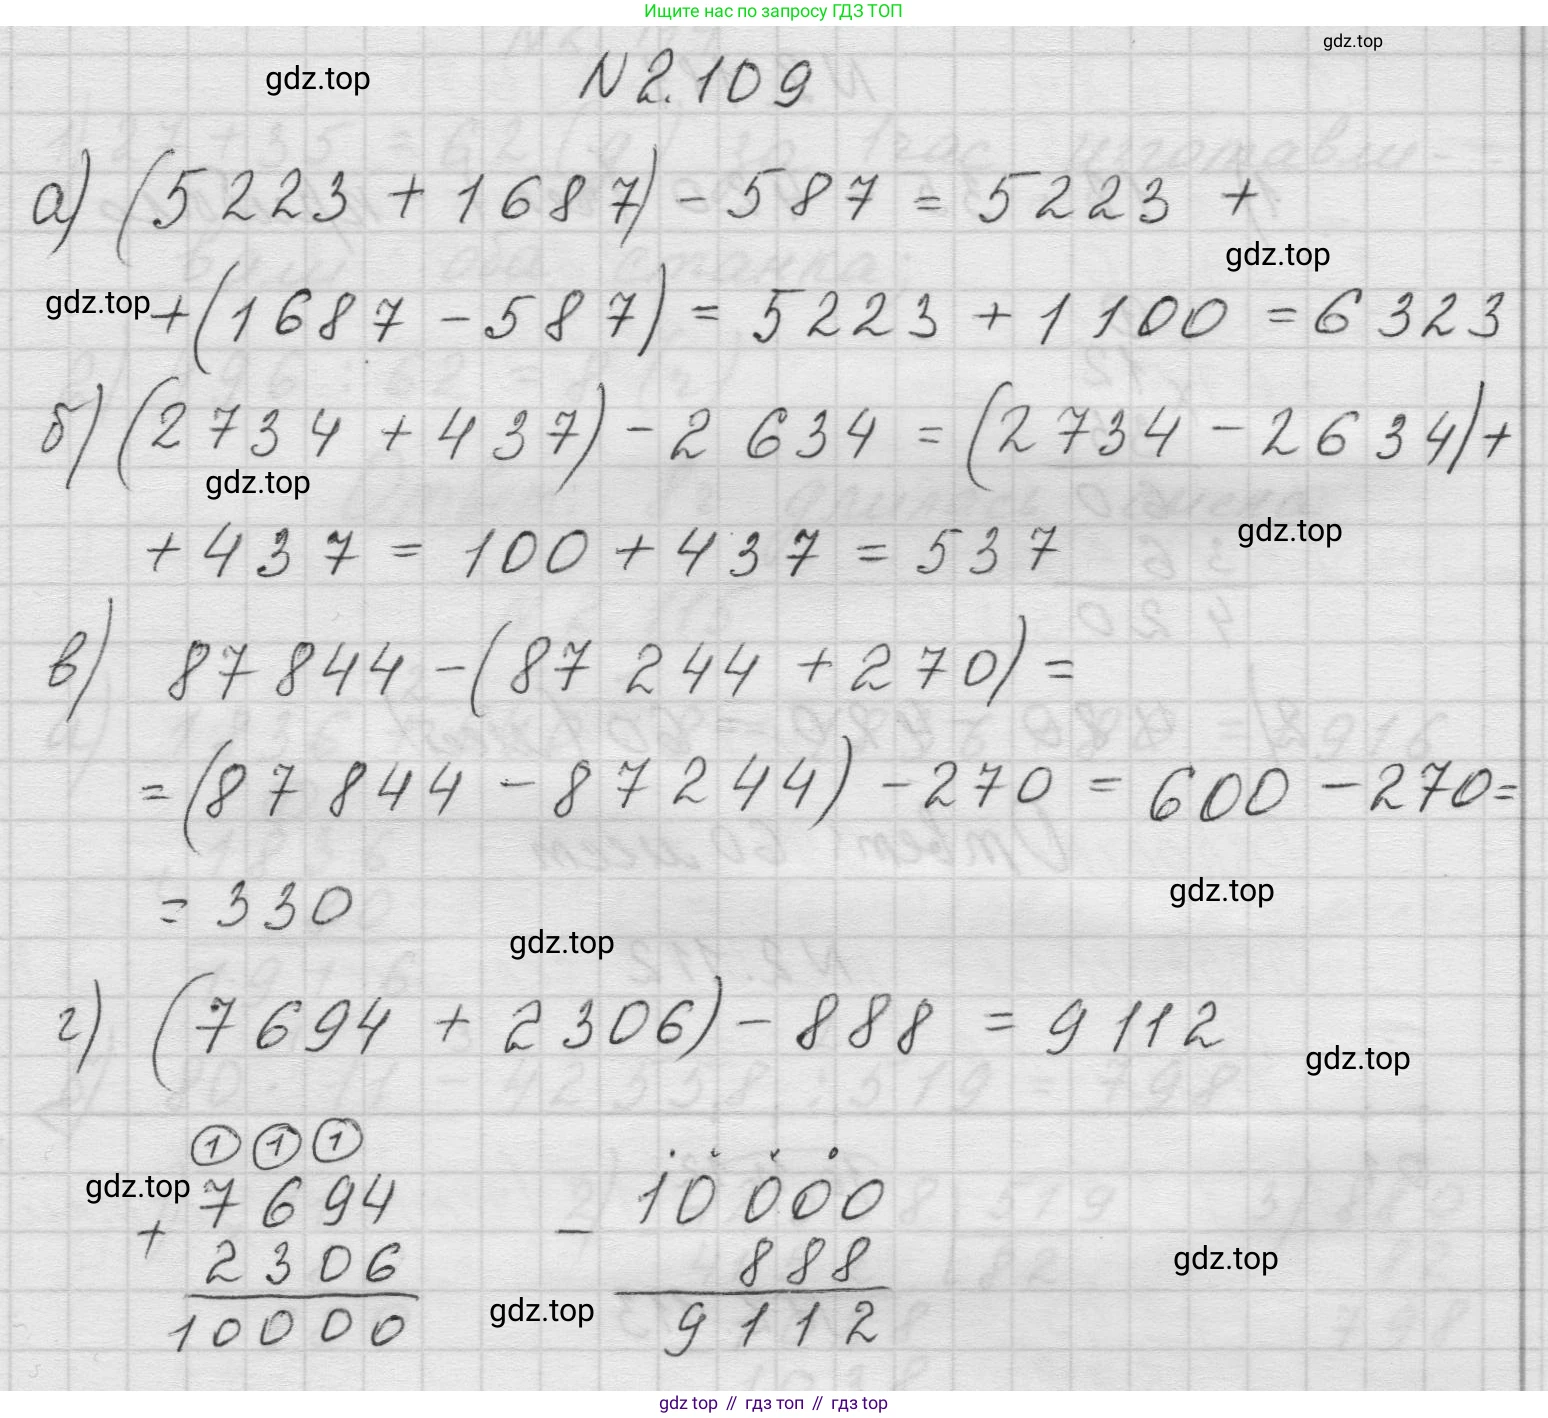 Ищите нас по запросу ГДЗ ТОП
gdz.top
gdz.top
N 2.109
а) (5223 + 1687) - 587 = 5223 +
gdz.top
gdz.top
+ (1687 - 587) = 5223 + 1100 = 6323
б) (2734 + 437) - 2634 = (2734 - 2634) +
gdz.top
gdz.top
+ 437 = 100 + 437 = 537
в) 87844 - (87244 + 270) =
= (87844 - 87244) - 270 = 600 - 270 =
= 330
gdz.top
gdz.top
г) (7694 + 2306) - 888 = 9112
gdz.top
1 1 1
gdz.top
7694
+
2306
10000
10000
-
888
9112
gdz.top
gdz.top
gdz top // гдз топ // гдз top